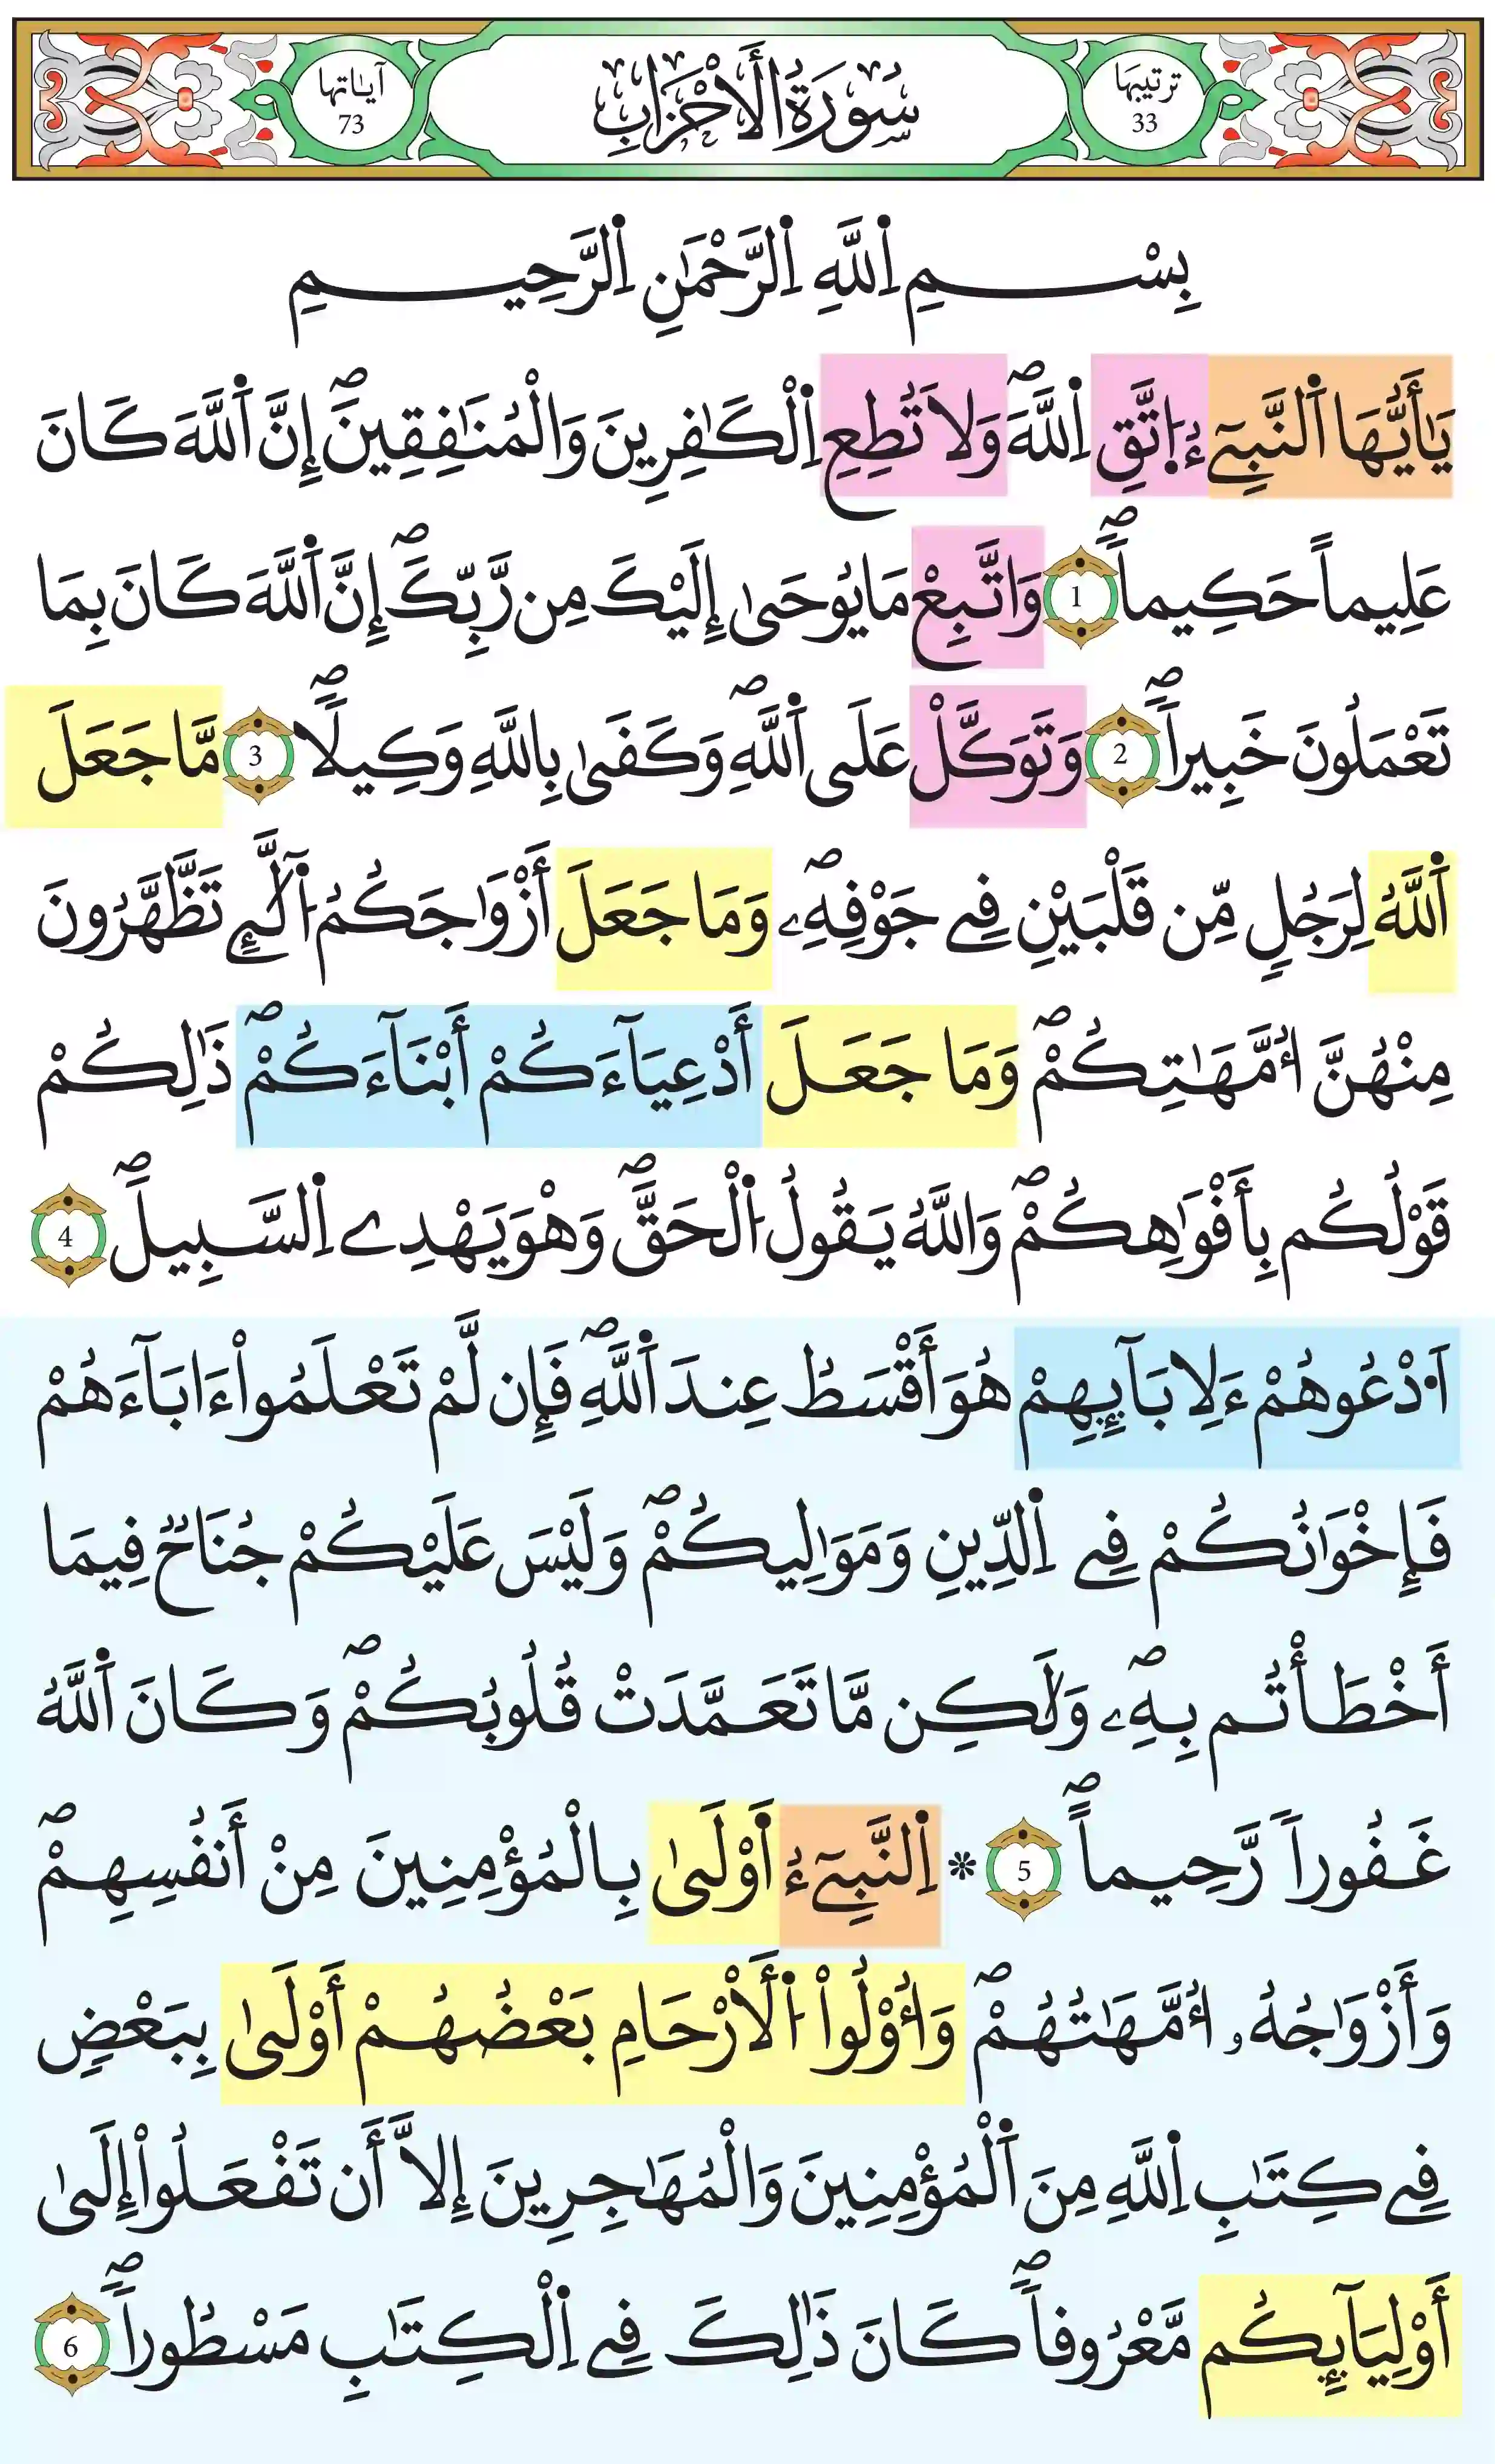 ترتيبها
33
سُورَةُ الْأَحْزَابِ
آيَاتها
73
بِسْمِ اِ۬للَّهِ اِ۬لرَّحْمَٰنِ اِ۬لرَّحِيمِ
يَٰأَيُّهَا اَ۬لنَّبِيٓءُ اِ۪تَّقِ اِ۬للَّهَۖ وَلَا تُطِعِ اِ۬لْكَٰفِرِينَ وَالْمُنَٰفِقِينَۖ إِنَّ اَ۬للَّهَ كَانَ
عَلِيماً حَكِيماًۖ 1 وَاتَّبِعْ مَا يُوحَىٰ إِلَيْكَ مِن رَّبِّكَۖ إِنَّ اَ۬للَّهَ كَانَ بِمَا
تَعْمَلُونَ خَبِيراًۖ 2 وَتَوَكَّلْ عَلَى اَ۬للَّهِۖ وَكَفَىٰ بِاللَّهِ وَكِيلاًۖ 3 مَّا جَعَلَ
اَ۬للَّهُ لِرَجُلٍ مِّن قَلْبَيْنِ فِے جَوْفِهِۦۖ وَمَا جَعَلَ أَزْوَٰجَكُمُ اُ۬لَّٰٓـِٕے تَظَّهَّرُونَ
مِنْهُنَّ أُمَّهَٰتِكُمْۖ وَمَا جَعَلَ أَدْعِيَآءَكُمْ أَبْنَآءَكُمْۖ ذَٰلِكُمْ
قَوْلُكُم بِأَفْوَٰهِكُمْۖ وَاللَّهُ يَقُولُ اُ۬لْحَقَّۖ وَهْوَ يَهْدِے اِ۬لسَّبِيلَۖ 4
اَ۟دْعُوهُمْ ءَلِابَآئِهِمْ هُوَ أَقْسَطُ عِندَ اَ۬للَّهِۖ فَإِن لَّمْ تَعْلَمُواْ ءَابَآءَهُمْ
فَإِخْوَٰنُكُمْ فِے اِ۬لدِّينِ وَمَوَٰلِيكُمْۖ وَلَيْسَ عَلَيْكُمْ جُنَاحٌ فِيمَا
أَخْطَأْتُم بِهِۦۖ وَلَٰكِن مَّا تَعَمَّدَتْ قُلُوبُكُمْۖ وَكَانَ اَ۬للَّهُ
غَفُوراً رَّحِيماًۖ 5 * اِ۬لنَّبِيٓءُ اَوْلَىٰ بِالْمُؤْمِنِينَ مِنْ أَنفُسِهِمْۖ
وَأَزْوَٰجُهُۥ أُمَّهَٰتُهُمْۖ وَأُوْلُواْ اُ۬لْأَرْحَامِ بَعْضُهُمْ أَوْلَىٰ بِبَعْضٍ
فِے كِتَٰبِ اِ۬للَّهِ مِنَ اَ۬لْمُؤْمِنِينَ وَالْمُهَٰجِرِينَ إِلَّا أَن تَفْعَلُواْ إِلَىٰ
أَوْلِيَآئِكُم مَّعْرُوفاًۖ كَانَ ذَٰلِكَ فِے اِ۬لْكِتَٰبِ مَسْطُوراًۖ 6